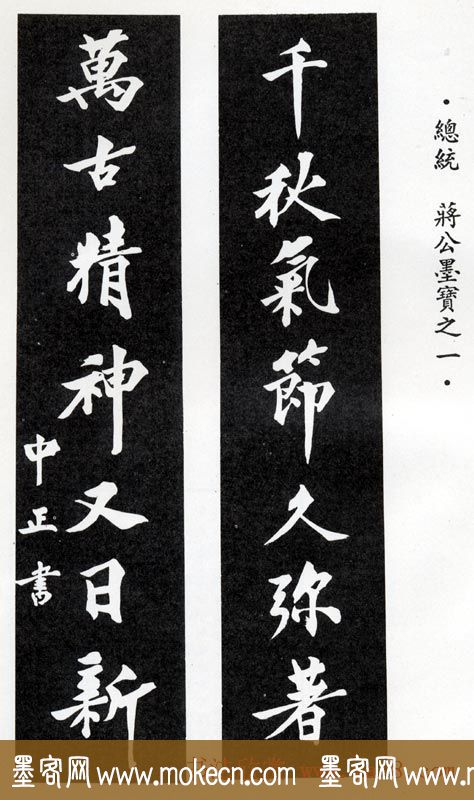 ·總統 蔣公墨寶之一·
千秋氣節久弥著
萬古精神又日新
中正書
墨客网 www.mokecn.com 墨客网 www.mokecn.com 墨客网 www.m